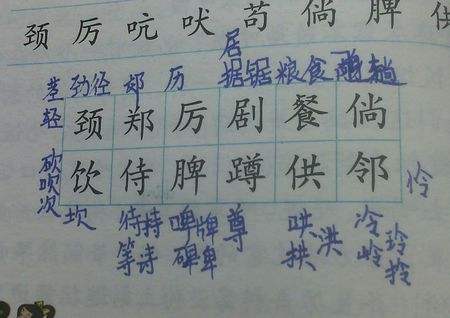 颈厉吭吠苟倘脾供
居
茎劲径郏历据锯粮食趟
轻颈郑厉剧餐倘
砍吹次饮侍脾蹲供邻伶
坎待持啤牌尊哄洪冷玲
等诗碑卑拱岭拎